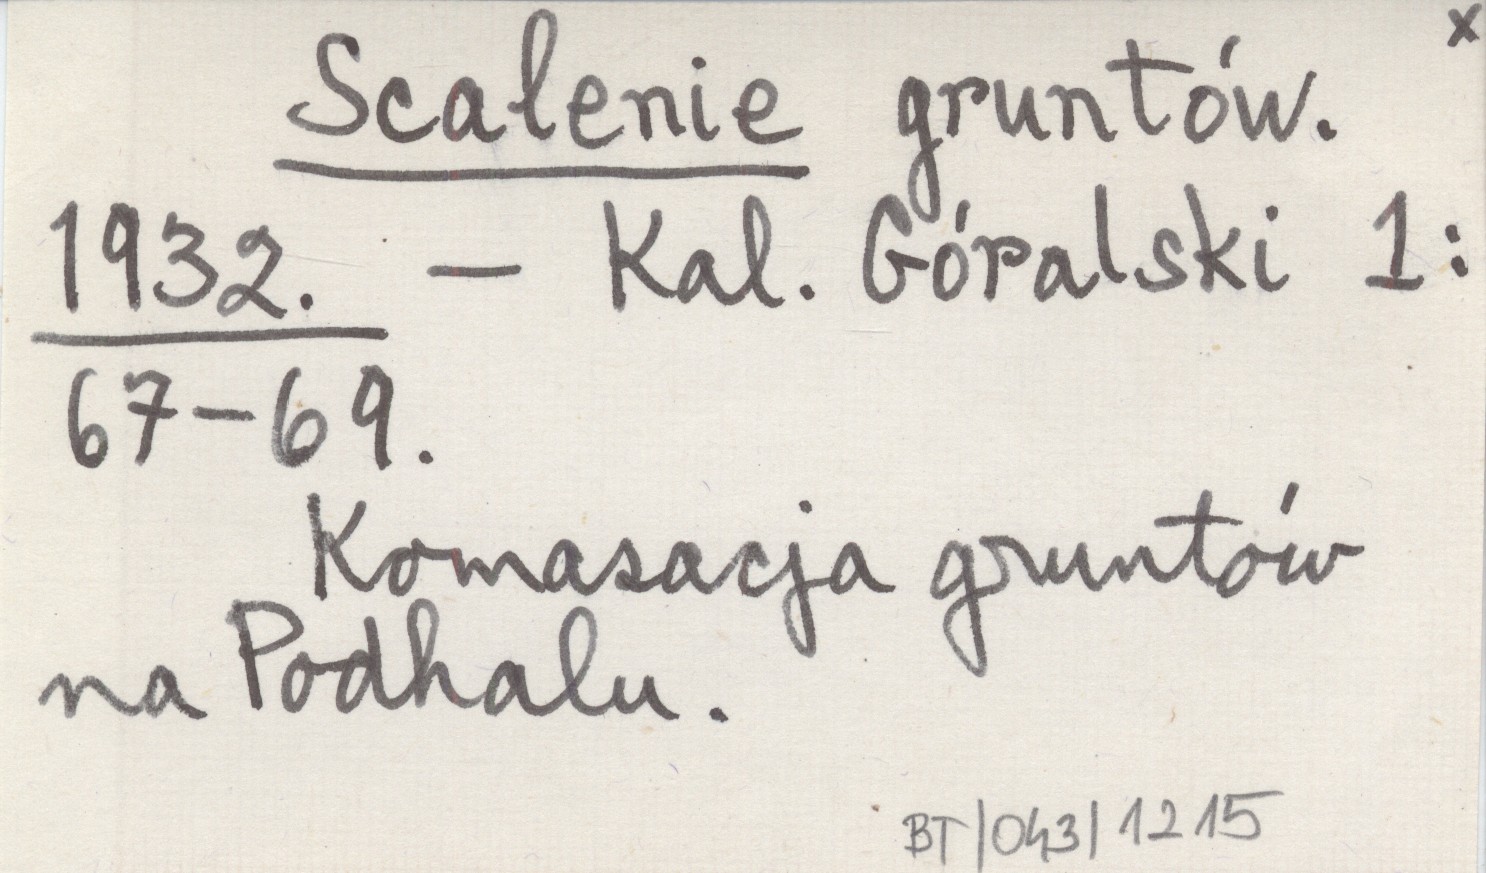 x
Scalenie gruntów.
1932. – Kal. Góralski 1:
67–69.
Komasacja gruntów
na Podhalu.
BT/043/1215